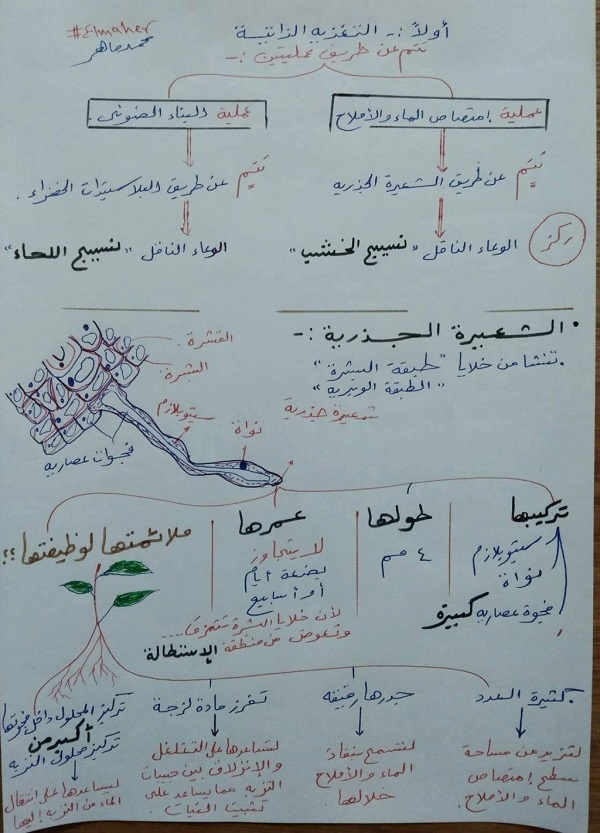 #Elmaher
محمد ماهر
أولاً :- التغذية الذاتية
تتم عن طريق عمليتين :-
عملية إمتصاص الماء والأملاح
عملية البناء الضوئى.
تتم عن طريق الشعيرة الجذريه
تتم عن طريق البلاستيدات الخضراء.
ركز
الوعاء الناقل "نسيج الخشب"
الوعاء الناقل "نسيج اللحاء"
• الشعيرة الجذرية :-
• تنشأ من خلايا "طبقة البشرة"
"الطبقة الوبرية"
القشرة.
البشرة
سيتوبلازم
نواة
شعيرة جذرية
فجوات عصاريه
تركيبها
سيتوبلازم
نواة
فجوة عصاريه كبيرة
طولها
٤ مم
عمرها
لا يتجاوز
بضعة أيام
أو أسابيع
لأن خلايا البشرة تتمزق....
وتعوض من منطقة الإستطالة
ملائمتها لوظيفتها؟؟
كثيرة العدد
لتزيد من مساحة
سطح إمتصاص
الماء والأملاح.
جدرها رقيقه
لتسمح بنفاذ
الماء والأملاح
خلالها.
تفرز مادة لزجة
لتساعدها على التغلغل
والإنزلاق بين حبيبات
التربه مما يساعد على
تثبيت النبات.
تركيز المحلول داخل فجوتها
أكبر من
تركيز محلول التربه
ليساعدها على إنتقال
الماء من التربه إليها